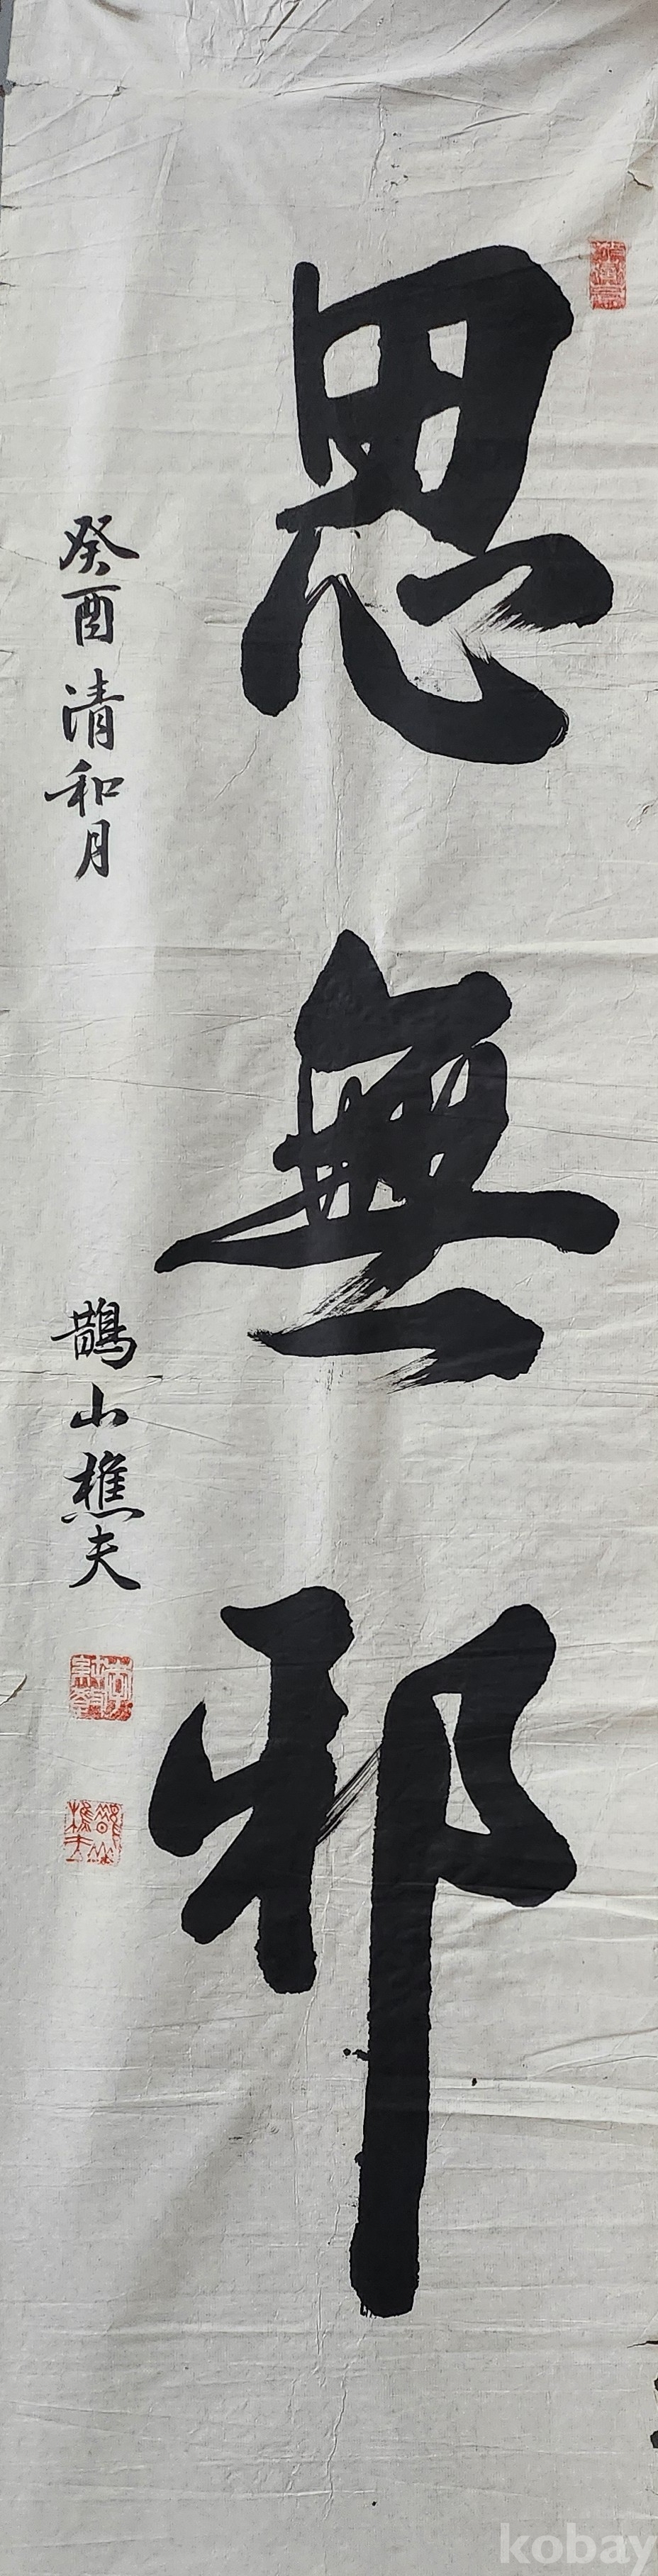 思無邪
癸酉清和月
鵲山樵夫
kobay